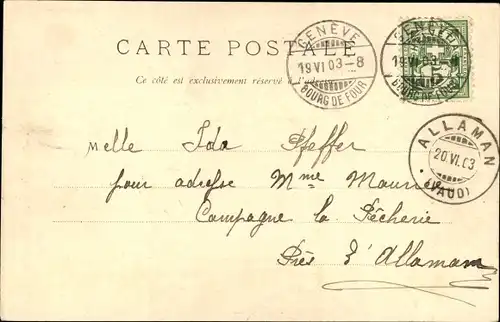 CARTE POSTALE
Ce côté est exclusivement réservé à l'adresse
GENÈVE
19 VI 03-8
BOURG DE FOUR
GENÈVE
19 VI 03-8
BOURG DE FOUR
ALLAMAN
20.VI.03
(VAUD)
Melle Ida Pfeffer
pour adresse Mme Maurice
Campagne la Pêcherie
Près d'Allaman